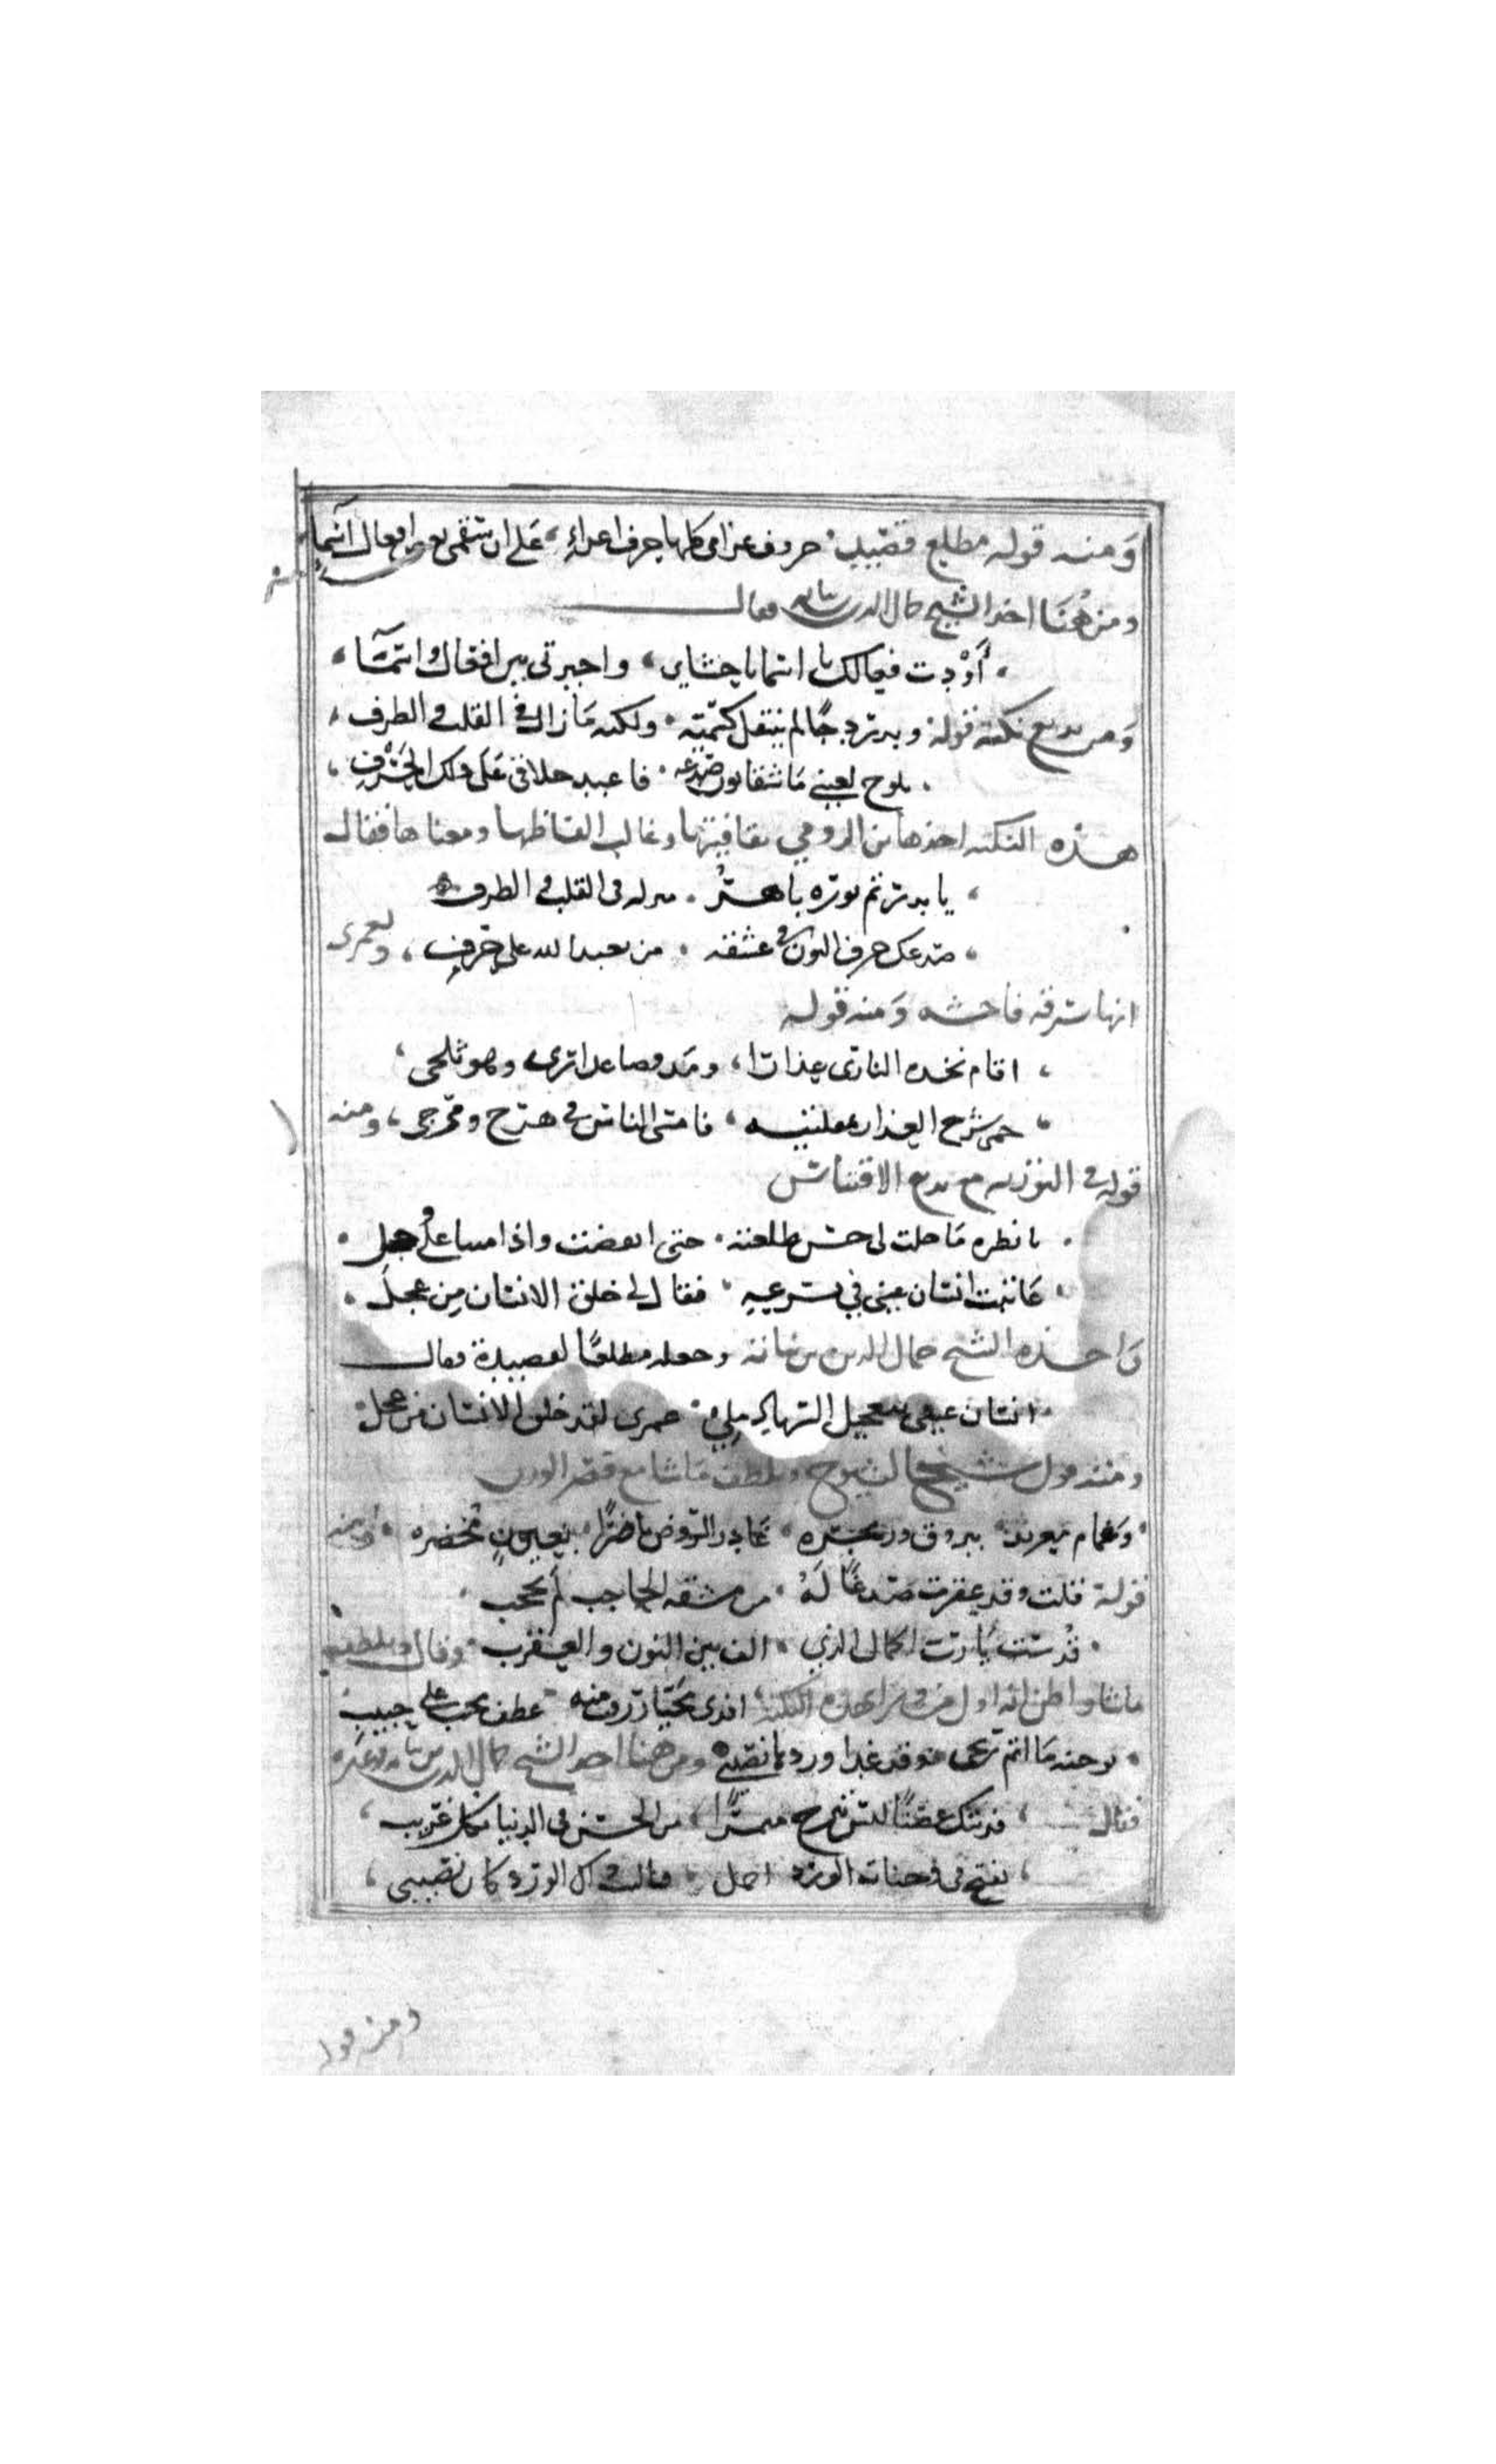 ومنه قوله مطلع قصيد حروف غرامي كلها حرف اغراءِ على ان سقمي بعض افعال اسماءِ
ومن هنا اخذ الشيخ جمال الدين بن نباته فقال
اودت فعالك يا اسما باحشاي واحيرتي بين افعال واسماء
ومن بديع نكته قوله وبدر دجا لم ينتقل كتمته ولكنه ما زال في القلب والطرف
يلوح لعيني ما شقا نون صدغه فاعبد خلاقي على ذلك الحرف
هذه النكته اخذها بن الرومي بقافيتها وغالب الفاظها ومعناها فقال
يا بدر تم نوره باهر منزله في القلب والطرف
صدغك حرف النون في عشقه من يعبد الله على حرف ولعمري
انها سرقه فاحشه ومنه قوله
اقام بخده الناري عذارا ومد وصاعدا ترى وهو ثلجي
حمى شرح العذار بمقلتيه فامسى الناس في هرج ومرج ومنه
قوله في التوريه مع بديع الاقتباس
يا نظره ما جلت لي حسن طلعته حتى انقضت واذا منيا على وجل
عاتبت انسان عيني في تسرعه فقال لي خلق الانسان من عجل
واخذه الشيخ جمال الدين بن نباته وجعله مطلعا لقصيدة فقال
انسان عيني بتعجيل السهاد بلي عمري لقد خلق الانسان من عجل
ومنه قول شيخ الشيوخ وتلطف ما شا مع قصر الوزن
وغمام بروق ورعده غادر الروض ناضرا بعيون مخضره ومنه
قوله قلت وقد عقرب صدغا له من مشقه الحاجب لم يحجب
قدست يا رب الجمال الذي الف بين النون والعقرب وقال وتلطف
ما شا واظن انه اول من هذه النكته افدي حبيبا رزقت منه عطف محب على حبيب
بوجنه ما اتم وقد غدا وردها نصيبي ومن هنا اخذ الشيخ جمال الدين بن نباته
فقال فديتك غصنا ليس يبرح مثمرا من الحسن في الدنيا بكل غريب
يفتح في وجنات الورد كل الورد كان نصيبي
ومنه قوله